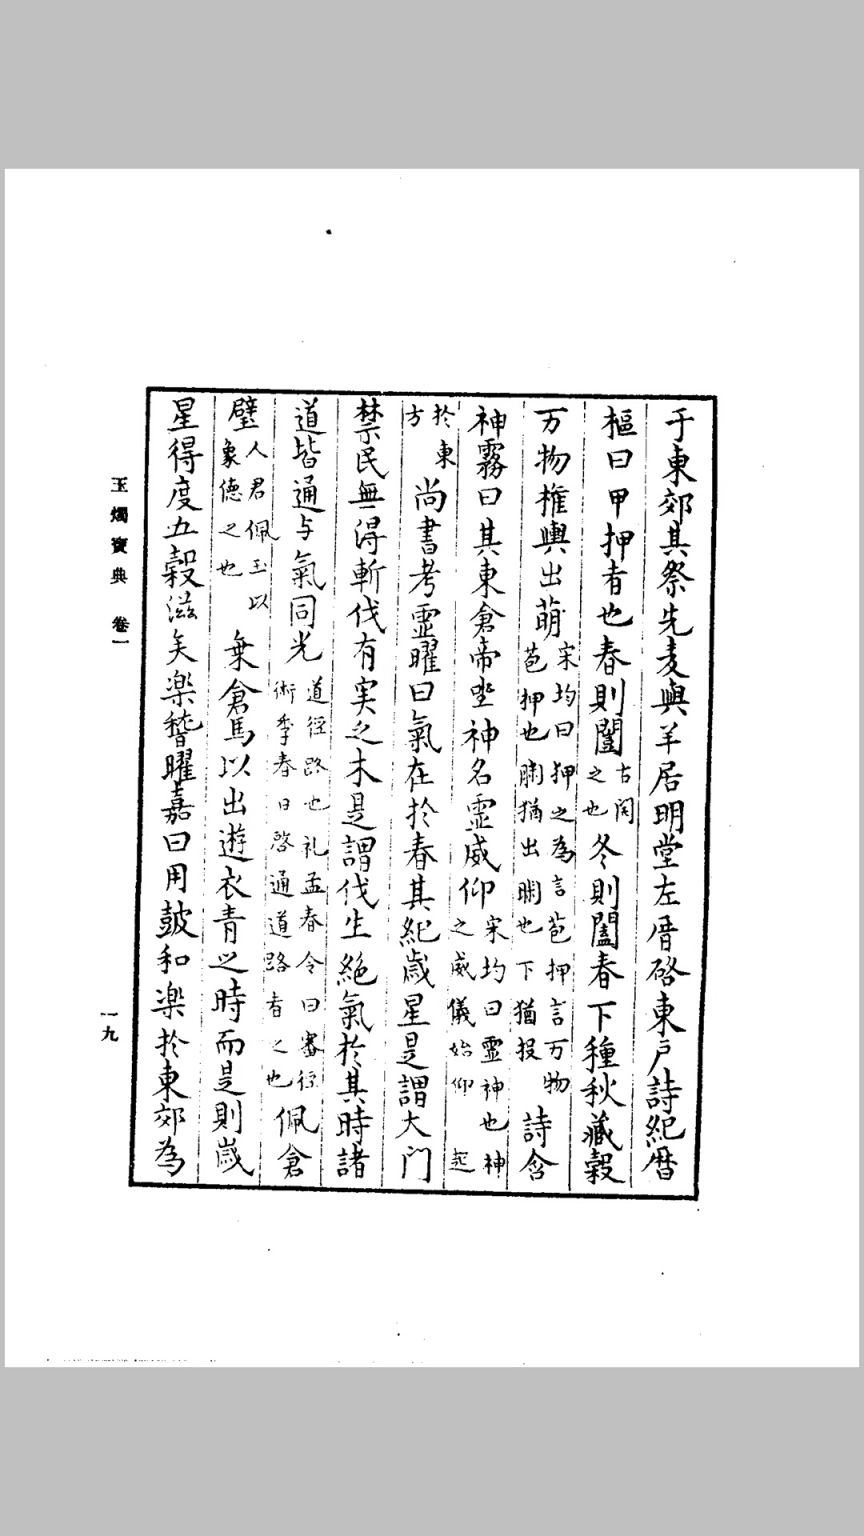 于東郊其祭先麦與羊居明堂左厝啓東戶詩紀曆
樞曰甲押者也春則闓古闓之也冬則闔春下種秋藏穀
万物権輿出萌宋均曰押之為言苞押言万物苞押也𦚾猶出𦚾也下猶投詩含
神霧曰其東倉帝坐神名霊威仰宋均曰霊神也神之威儀始仰起
於東方尚書考霊曜曰氣在於春其紀歲星是謂大門
禁民無得斬伐有実之木是謂伐生絕氣於其時諸
道皆通与氣同光道徑路也礼孟春令曰審徑術季春曰啓通道路者之也佩倉
璧人君佩玉以象德之也乗倉馬以出遊衣青之時而是則歲
星得度五穀滋矣楽稽曜嘉曰用皷和楽於東郊為
玉燭寶典 卷一
一九